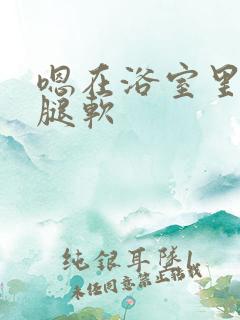 嗯在浴室里
腿软
纯银耳坠1
未经同意禁止转载